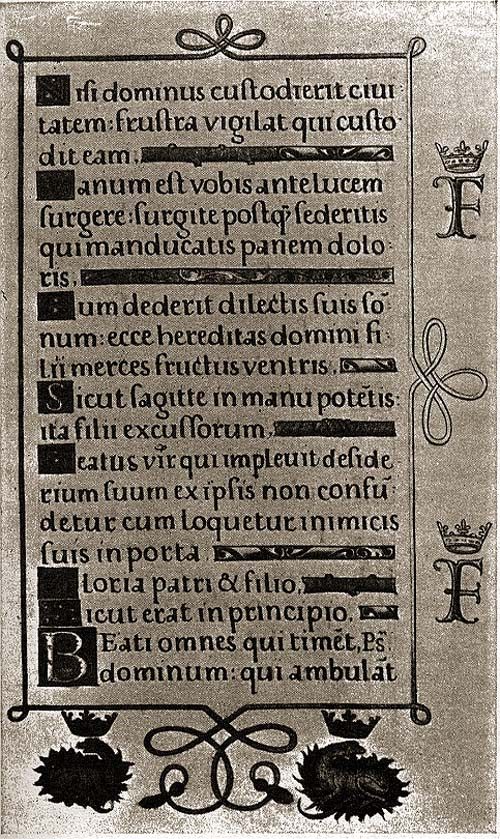 Nisi dominus custodierit ciui
tatem: frustra vigilat qui custo
dit eam.
Vanum est vobis ante lucem
surgere: surgite postqȝ sederitis
qui manducatis panem dolo
ris.
Cum dederit dilectis suis sõ
num: ecce hereditas domini fi
lii merces fructus ventris.
Sicut sagitte in manu potẽtis:
ita filii excussorum.
Beatus vir qui impleuit deside
rium suum ex ipsis non confũ
detur cum loquetur inimicis
suis in porta
Gloria patri & filio,
Sicut erat in principio.
BEati omnes qui timẽt, Ps̃.
dominum: qui ambulãt
F
F